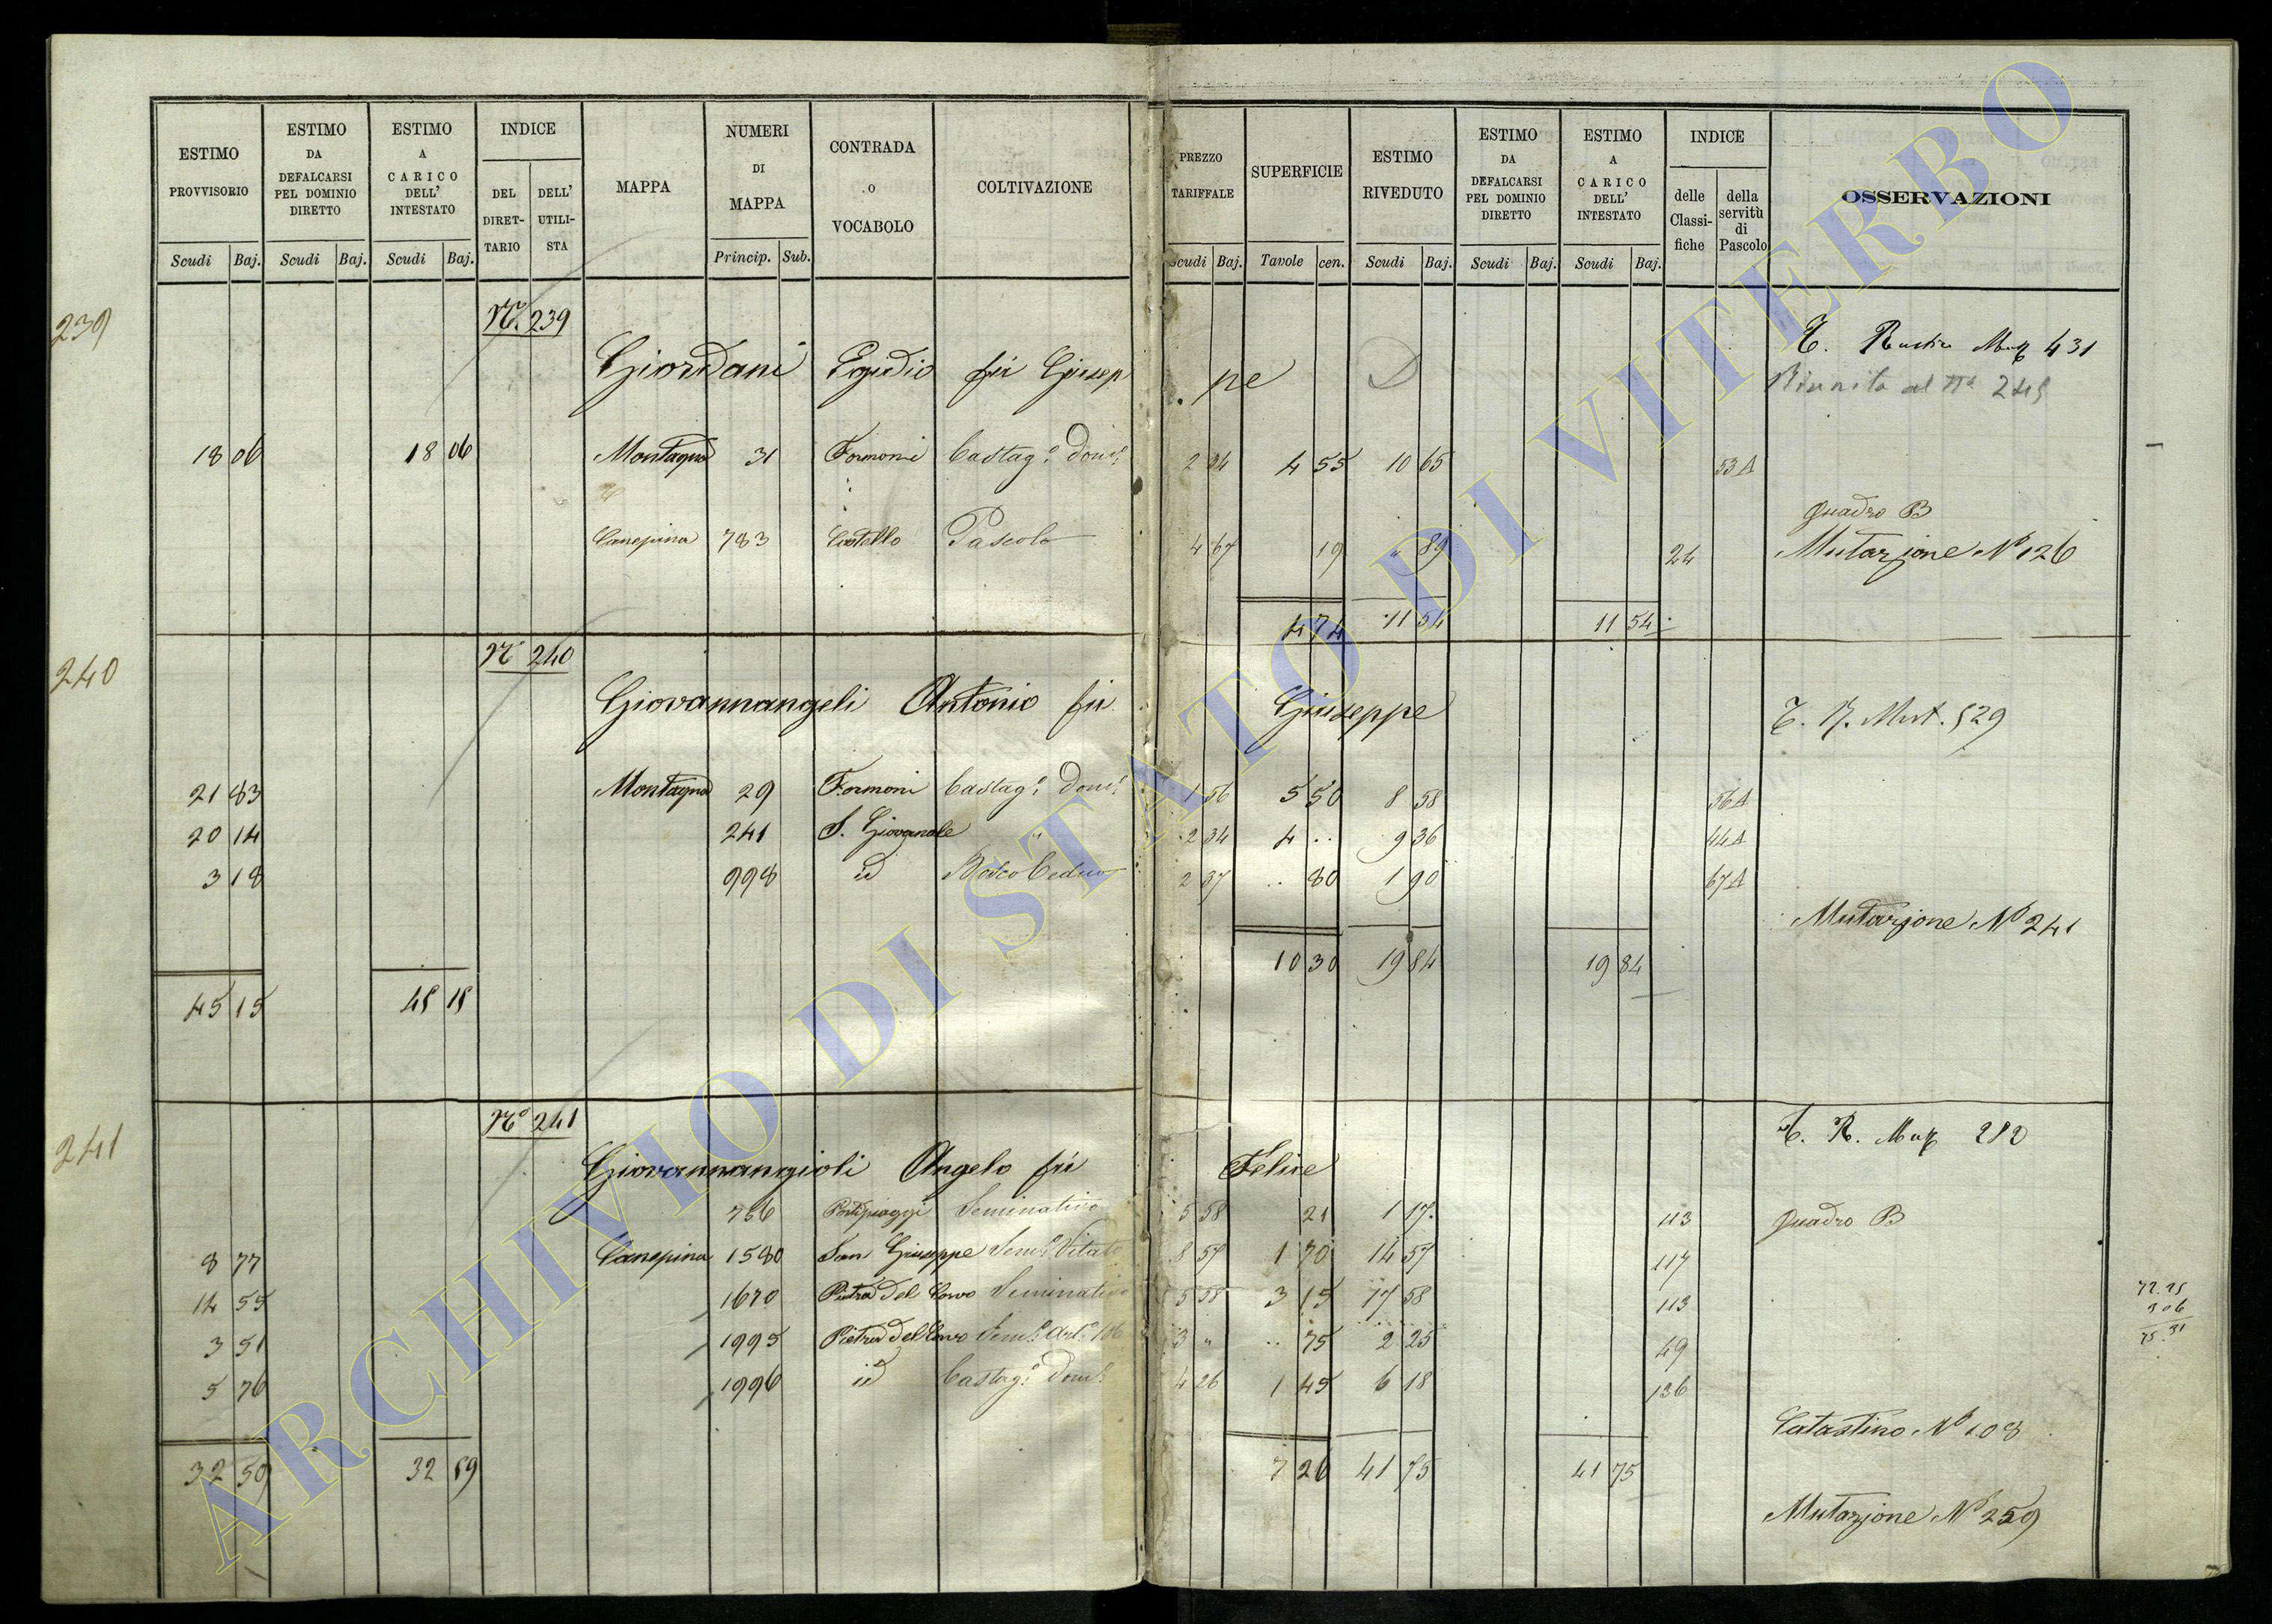 ESTIMO PROVVISORIO | ESTIMO DA DEFALCARSI PEL DOMINIO DIRETTO | ESTIMO A CARICO DELL' INTESTATO | INDICE | MAPPA | NUMERI DI MAPPA | CONTRADA o VOCABOLO | COLTIVAZIONE | PREZZO TARIFFALE | SUPERFICIE | ESTIMO RIVEDUTO | ESTIMO DA DEFALCARSI PEL DOMINIO DIRETTO | ESTIMO A CARICO DELL' INTESTATO | INDICE | OSSERVAZIONI
DEL DIRETTARIO | DELL' UTILISTA | delle Classifiche | della servitù di Pascolo
Scudi | Baj. | Scudi | Baj. | Scudi | Baj. | Princip. | Sub. | Scudi | Baj. | Tavole | cen. | Scudi | Baj. | Scudi | Baj. | Scudi | Baj.
239 N. 239
Giordani Egidio fu Giusep pe D T. Rustico 431
Riunita al N° 245
18 06 18 06 Montagna 31 Formoni Castag. Dom. 2 34 4 55 10 65 53 A
Quadro B
Canepina 783 Castello Pascolo 4 67 19 " 89 24 Mutazione N° 126
4 74 11 54 11 54
240 N° 240
Giovannangeli Antonio fu Giuseppe T. R. Mut. 529
21 83 Montagna 29 Formoni Castag. Dom. 1 56 5 50 8 58 56 A
20 14 241 S. Giovenale " 2 34 4 .. 9 36 44 A
3 18 998 id Bosco Ceduo 2 37 .. 80 1 90 67 A
Mutazione N° 241
10 30 19 84 19 84
45 15 45 15
241 N° 241 T. R. 282
Giovannangioli Angelo fu Felice
756 Seminativo 5 58 21 1 17 113 Quadro B
8 77 Canepina 1580 San Giuseppe Sem. Vitato 8 57 1 70 14 57 117
14 55 1670 Pietra del Corvo Seminativo 5 58 3 15 17 58 113
72.25
3 06
75.31
3 51 1995 Pietra del Corvo Sem. 3 " .. 75 2 25 49
5 76 1996 id Castag. Dom. 4 26 1 45 6 18 136
Catastino N° 108
32 59 32 59 7 26 41 75 41 75
Mutazione N° 259
ARCHIVIO DI STATO DI VITERBO